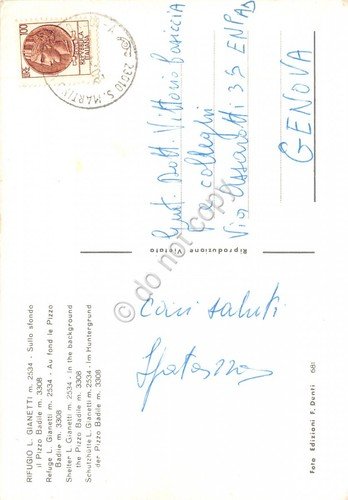 RIFUGIO L. GIANETTI m. 2534 - Sullo sfondo
il Pizzo Badile m. 3308
Refuge L. Gianetti m. 2534 - Au fond le Pizzo
Badile m. 3308
Shelter L. Gianetti m. 2534 - In the background
the Pizzo Badile m. 3308
Schutzhütte L. Gianetti m. 2534 - Im Huntergrund
der Pizzo Badile m. 3308
cari saluti
681
Foto Edizioni F. Donti
Riproduzione Vietata
do not copy
100
23010 S. MARTINO
Gent. Dott. Vittorio
e colleghi
Via Assarotti 33 ENPAS
GENOVA